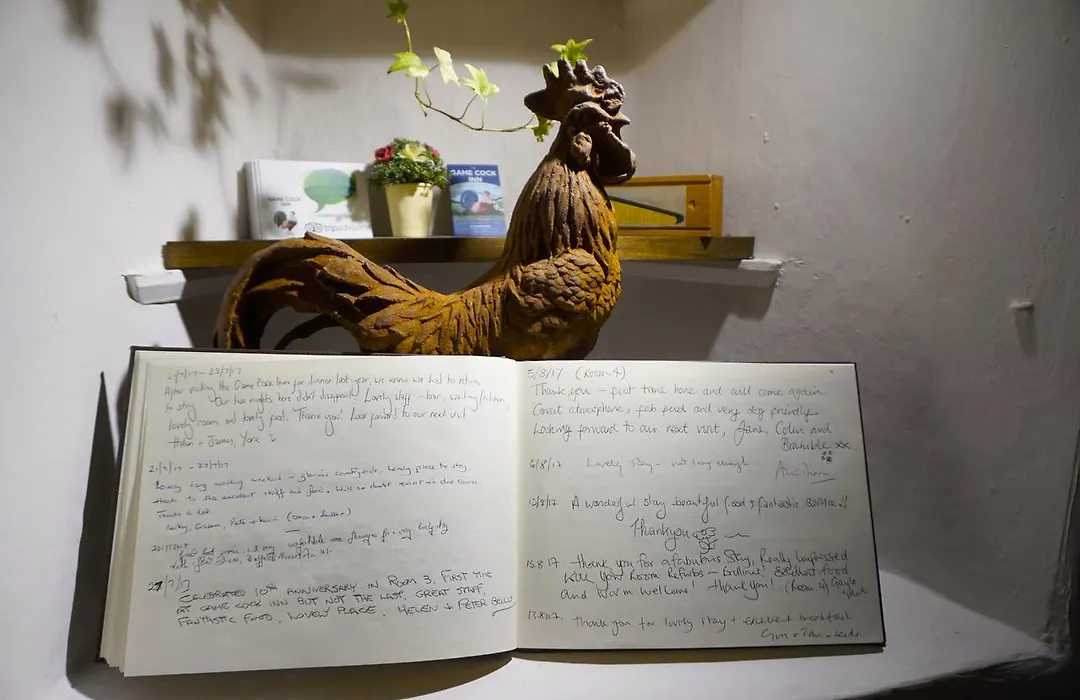 GAME COCK
INN
tripadvisor
GAME COCK
INN
21/7/17 - 23/7/17
After visiting the Game Cock Inn for dinner last year, we knew we had to return
to stay. Our two nights here didn't disappoint. Lovely staff - bar, waiting/kitchen,
lovely room and lovely food. Thank you! Look forward to our next visit
Helen + James, York
21/7/17 - 23/7/17
Lovely long walking weekend in glorious countryside. Lovely place to stay,
thanks to the excellent staff and food. Will no doubt revisit in due course
Thanks a lot
Pete + Kevin
27/7/17
CELEBRATED 10th ANNIVERSARY IN ROOM 3. FIRST TIME
AT GAME COCK INN BUT NOT THE LAST, GREAT STAFF,
FANTASTIC FOOD, LOVELY PLACE. HELEN + PETER
5/8/17 (Room 4)
Thank you - first time here and will come again.
Great atmosphere, fab food and very dog friendly
Looking forward to our next visit, Jane, Colin and
Bramble xx
6/8/17 Lovely stay - not long enough.
12/8/17 A wonderful stay beautiful food & fantastic service!!
Thankyou
15.8.17 Thank you for a fabulous stay, Really impressed
with your Room Refurbs - Brilliant! Excellent food
and warm welcome. Thank you! (Room 4) Gayle
17.8.17 Thank you for lovely stay + excellent breakfast